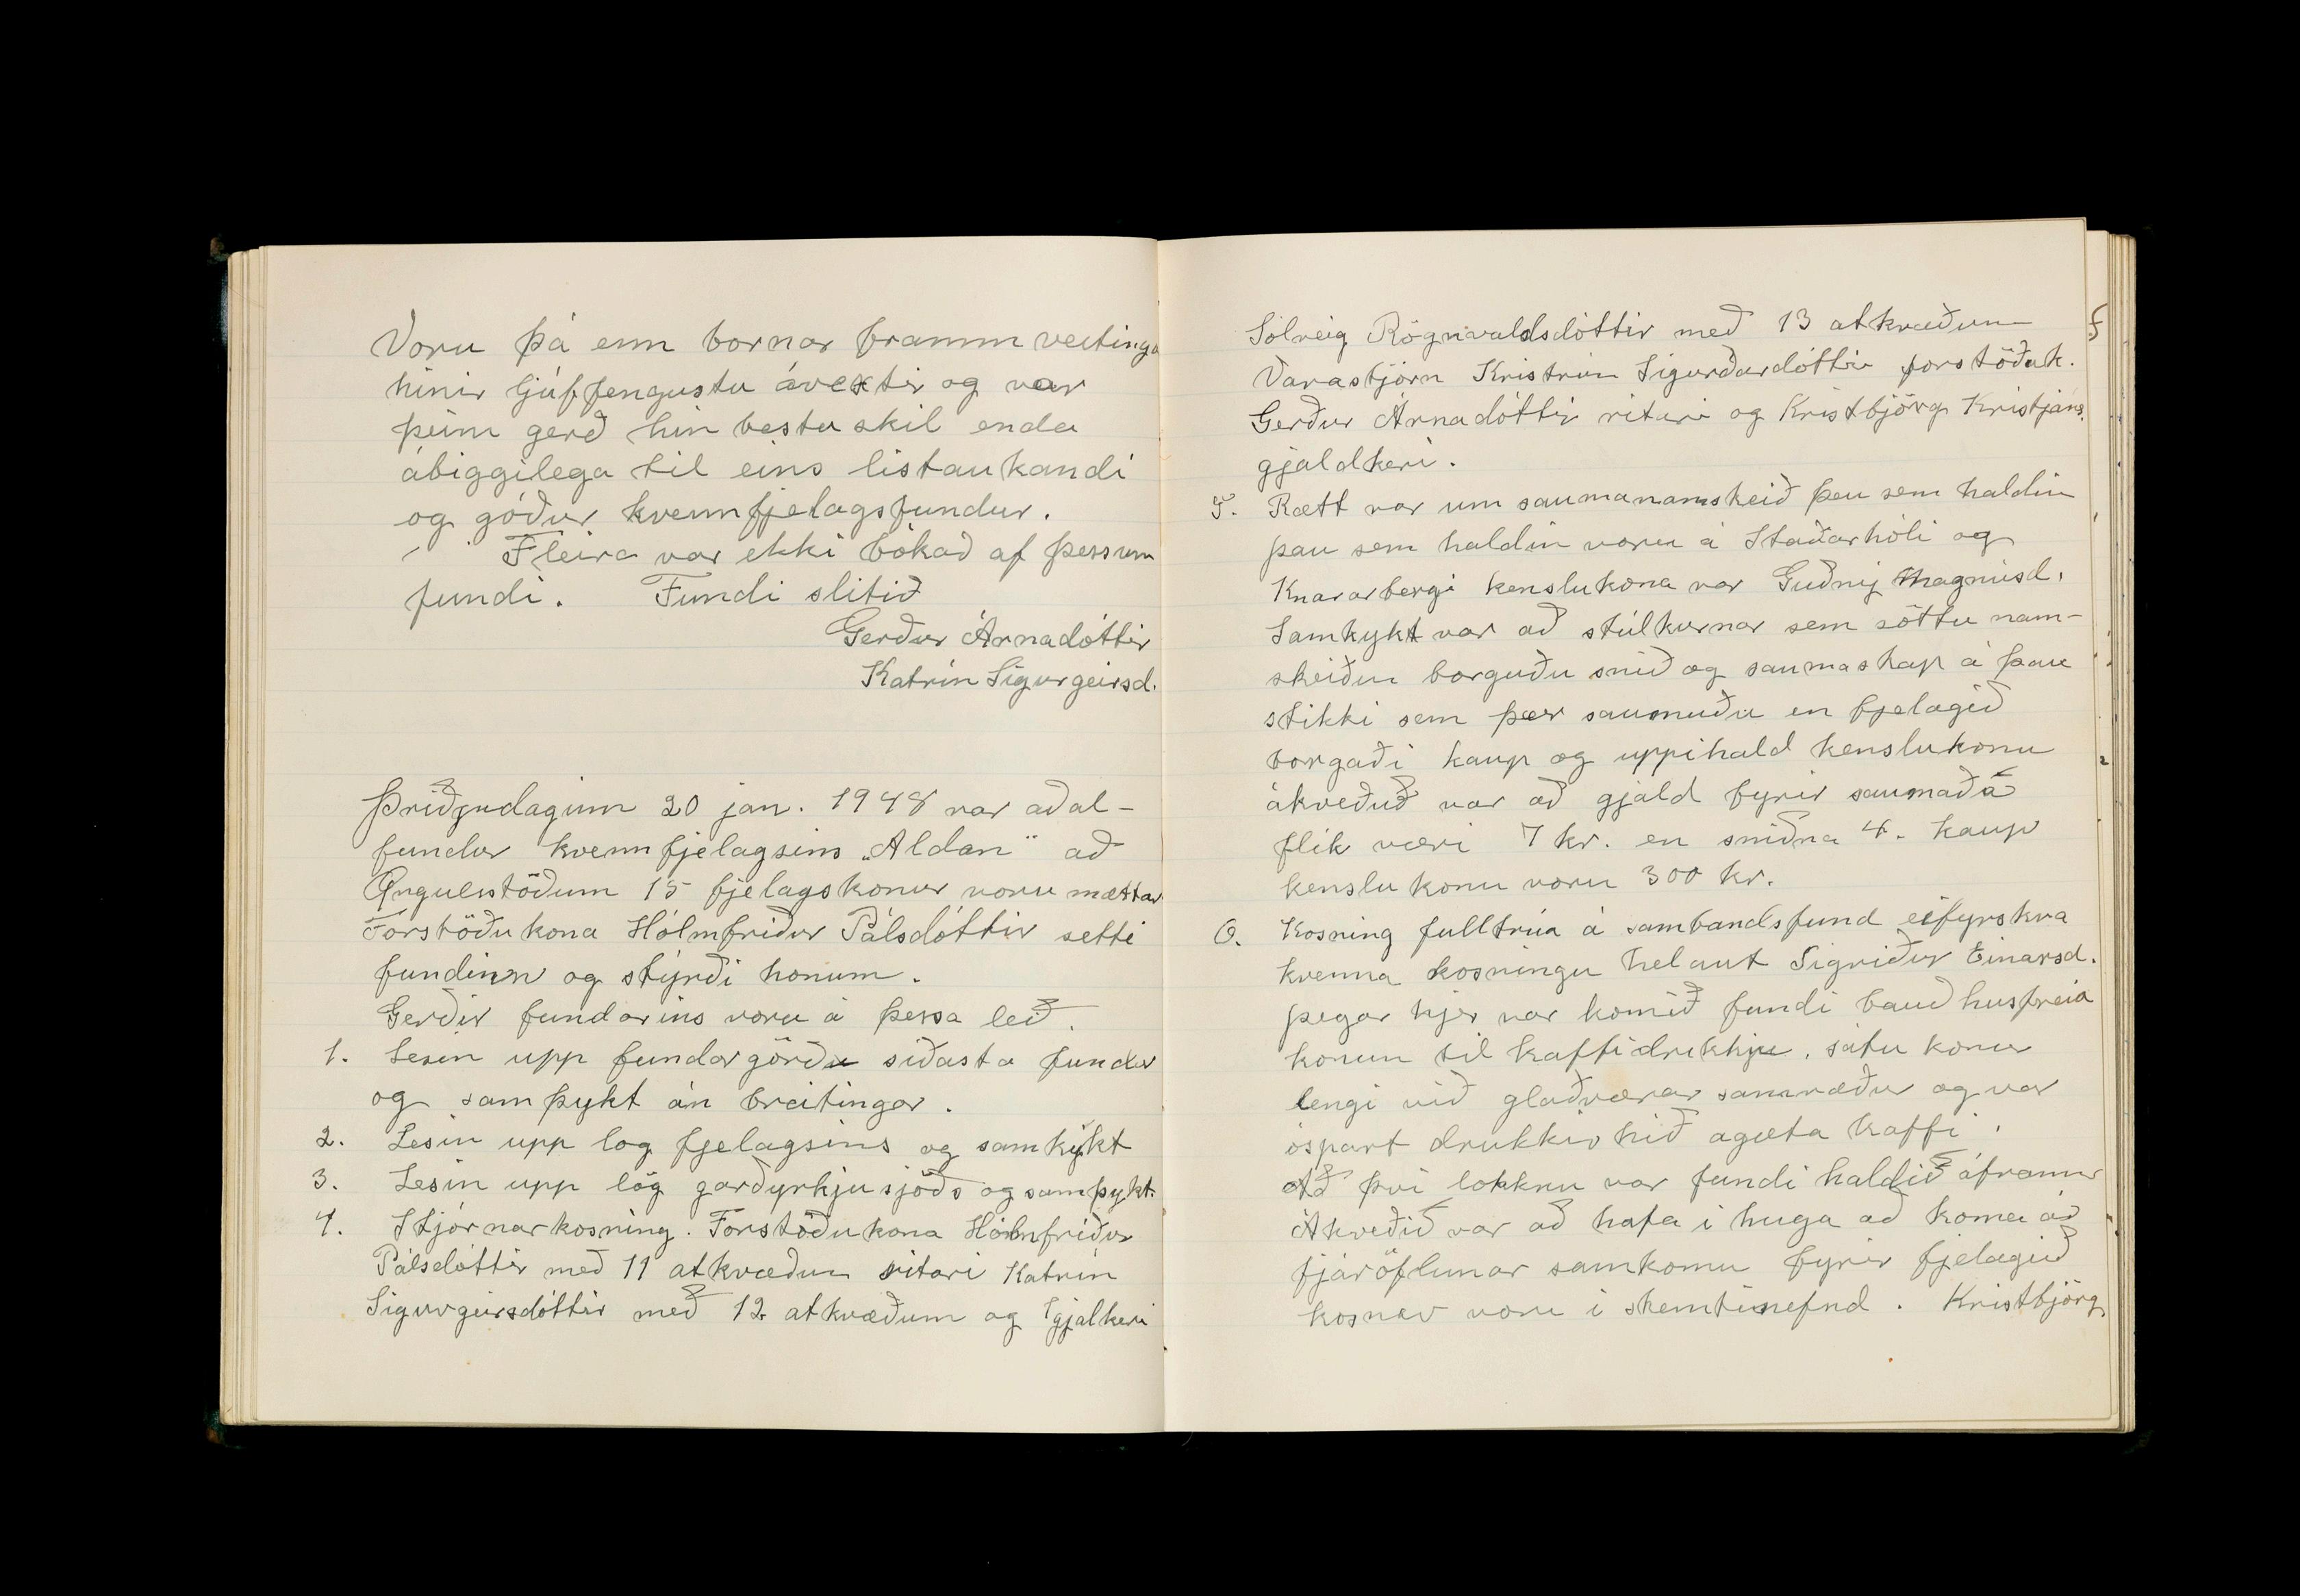 Voru þá enn bornar framm veitinga
hinir ljúffengustu ávextir og var
þeim gerð hin bestu skil enda
ábiggilega til eins listaukandi
og góður kvennfjelagsfundur.
Fleira var ekki bókað af þessum
fundi. Fundi slitið
Gerður Árnadóttir
Katrín Sigurgeirsd.
Þriðjudaginn 20 jan. 1948 var aðal-
fundur kvennfjelagsins „Aldan" að
Öngulsstöðum 15 fjelagskonur voru mættar
Forstöðukona Hólmfríður Pálsdóttir setti
fundinn og stýrði honum.
Gerðir fundarins voru á þessa leið.
1. Lesin upp fundargörð síðasta fundar
og samþykt án breitingar.
2. Lesin upp lög fjelagsins og samþykt
3. Lesin upp lög garðyrkjusjóðs og samþykt.
4. Stjórnarkosning. Forstöðukona Hólmfríður
Pálsdóttir með 11 atkvæðum ritari Katrín
Sigurgeirsdóttir með 12 atkvæðum og gjalkeri
Sólveig Rögnvaldsdóttir með 13 atkvæðum
Varastjórn Kristrún Sigurðardóttir forstöðuk.
Gerður Árnadóttir ritari og Kristbjörg Kristjáns.
gjaldkeri.
5. Rætt var um saumanamskeið þau sem haldin
þau sem haldin voru á Staðarhóli og
Knararbergi kenslukona var Guðný Magnúsd.
Samþykt var að stúlkurnar sem sóttu nam-
skeiðin borguðu snið og saumaskap á þau
stikki sem þær saumuðu en fjelagið
borgaði kaup og uppihald kenslukonu
ákveðið var að gjald fyrir saumaða
flík væri 7 kr. en sniðna 4. kaup
kenslukonu voru 300 kr.
6. Kosning fulltrúa á sambandsfund eifyrskra
kvenna kosningu helaut Sigríður Einarsd.
þegar hjer var komið fundi bauð husfreia
konum til kaffidrikkju, sátu konur
lengi við glaðværar samræður og var
óspart drukkið hið agæta kaffi.
Að því loknu var fundi haldið áframm
Ákveðið var að hafa í huga að koma á
fjáröflunar samkomu fyrir fjelagið
kosnar voru í skemtinefnd. Kristbjörg